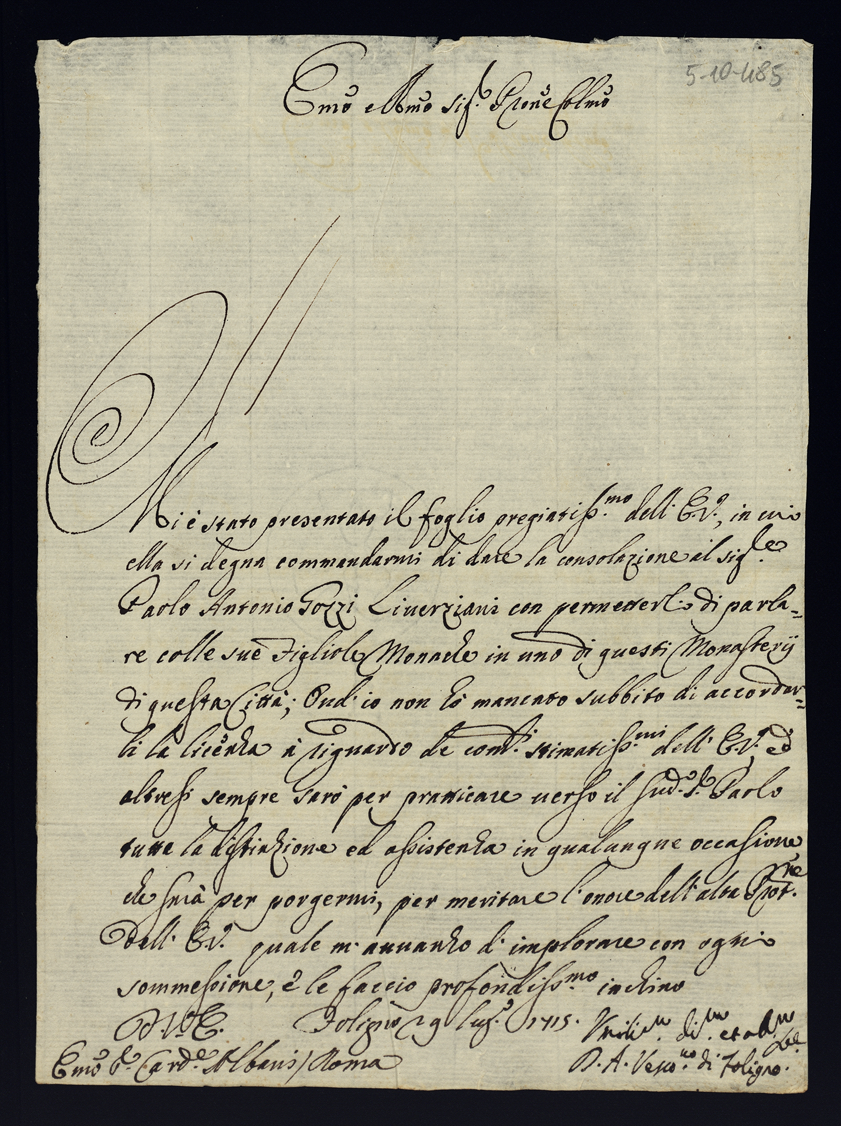 5-10-485
Emo e Rmo Sig.e Prone Colmo
Mi è stato presentato il foglio pregiatiss.mo dell' E.V.a, in cui
ella si degna commandarmi di dare la consolazione al sig.re
Paolo Antonio Gozzi Liverziani con permetterli di parla=
re colle sue Figliole Monache in uno di questi Monasterij
di questa Città; Ond' io non hò mancato subbito di accordar=
li la licenza à riguardo de com.di stimatiss.mi dell' E.V.a ed
altresi sempre sarò per pratticare verso il sud.o S.re Paolo
tutta la distinzione ed assistenza in qualunque occasione
che sarà per porgermi, per meritare l'onore dell' alta Prot.ne
dell' E.V. quale m'avvanzo d'implorare con ogni
sommessione, è le faccio profondiss.mo inchino
D. V.a E. Foligno 19 Lug.o 1715. et
Emo S.re Card.e Albani / Roma D. A. Vesco.vo di Foligno.